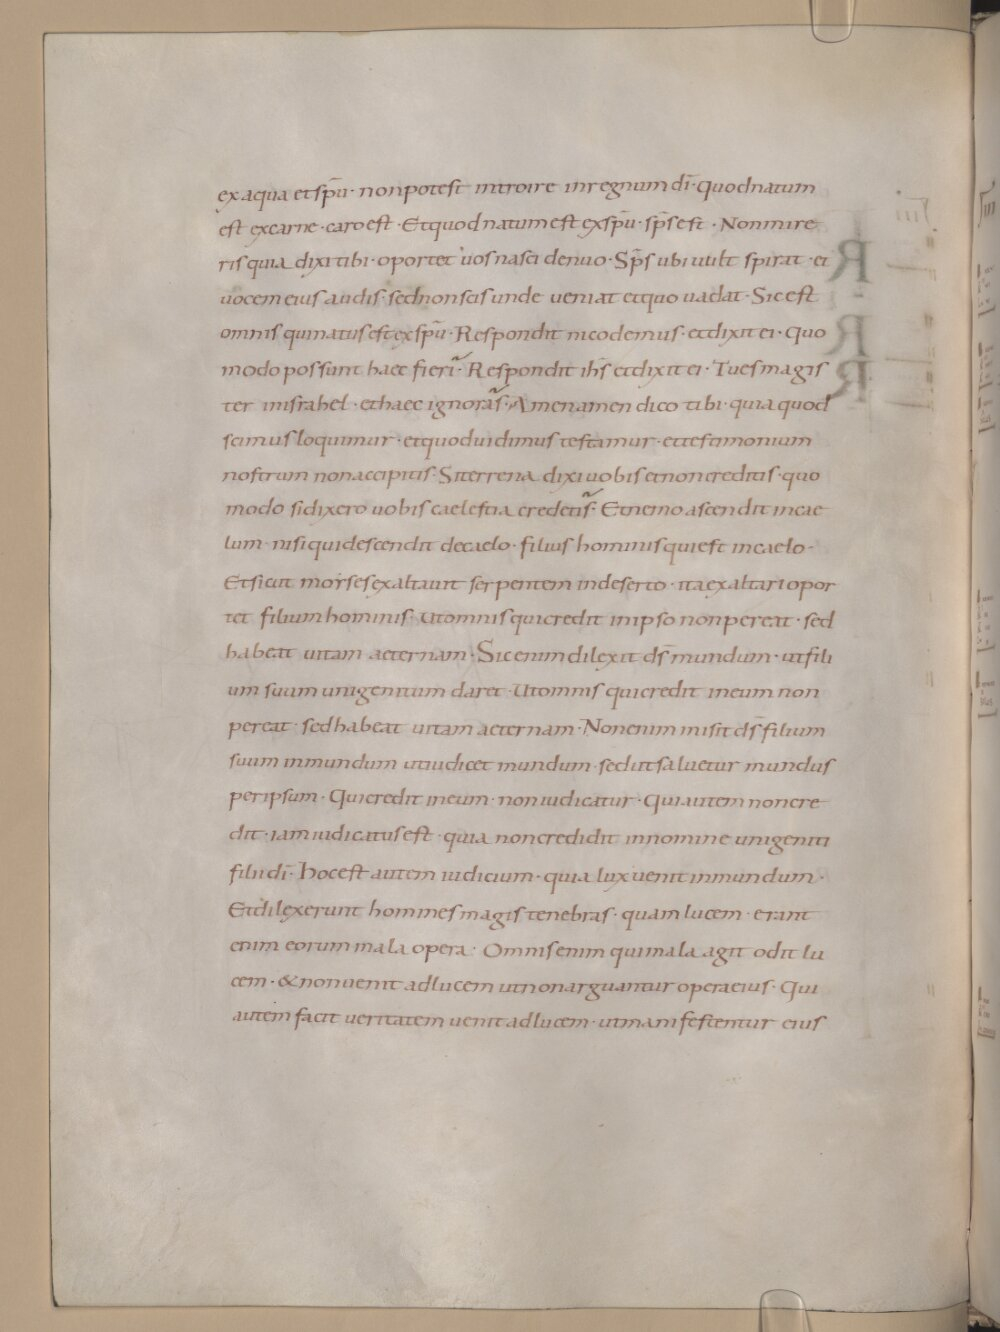 ex aqua et sp̄u · non potest introire in regnum dī · quod natum
est ex carne · caro est · Et quod natum est ex sp̄u · sp̄s est · Non mire
ris quia dixi tibi · oportet uos nasci denuo · Sp̄s ubi uult spirat · et
uocem eius audis · sed non scis unde ueniat et quo uadat · Sic est
omnis qui natus est ex sp̄u · Respondit nicodemus · et dixit ei · Quo
modo possunt haec fieri · Respondit ih̄s et dixit ei · Tu es magis
ter in israhel · et haec ignoras · Amen amen dico tibi · quia quod
scimus loquimur · et quod uidimus testamur · et testimonium
nostrum non accipitis · Si terrena dixi uobis et non creditis · quo
modo si dixero uobis caelestia credetis · Et nemo ascendit in cae
lum · nisi qui descendit de caelo · filius hominis qui est in caelo ·
Et sicut morses exaltauit serpentem in deserto · ita exaltari opor
tet filium hominis · Ut omnis qui credit in ipso non pereat · sed
habeat uitam aeternam · Sic enim dilexit ds̄ mundum · ut fili
um suum unigenitum daret · Ut omnis qui credit in eum non
pereat · sed habeat uitam aeternam · Non enim misit ds̄ filium
suum in mundum ut iudicet mundum · sed ut saluetur mundus
per ipsum · Qui credit in eum · non iudicatur · Qui autem non cre
dit · iam iudicatus est · quia non credidit in nomine unigeniti
filii dī · Hoc est autem iudicium · quia lux uenit in mundum ·
Et dilexerunt homines magis tenebras · quam lucem · erant
enim eorum mala opera · Omnis enim qui mala agit odit lu
cem · & non uenit ad lucem ut non arguantur opera eius · Qui
autem facit ueritatem uenit ad lucem · ut manifestentur eius